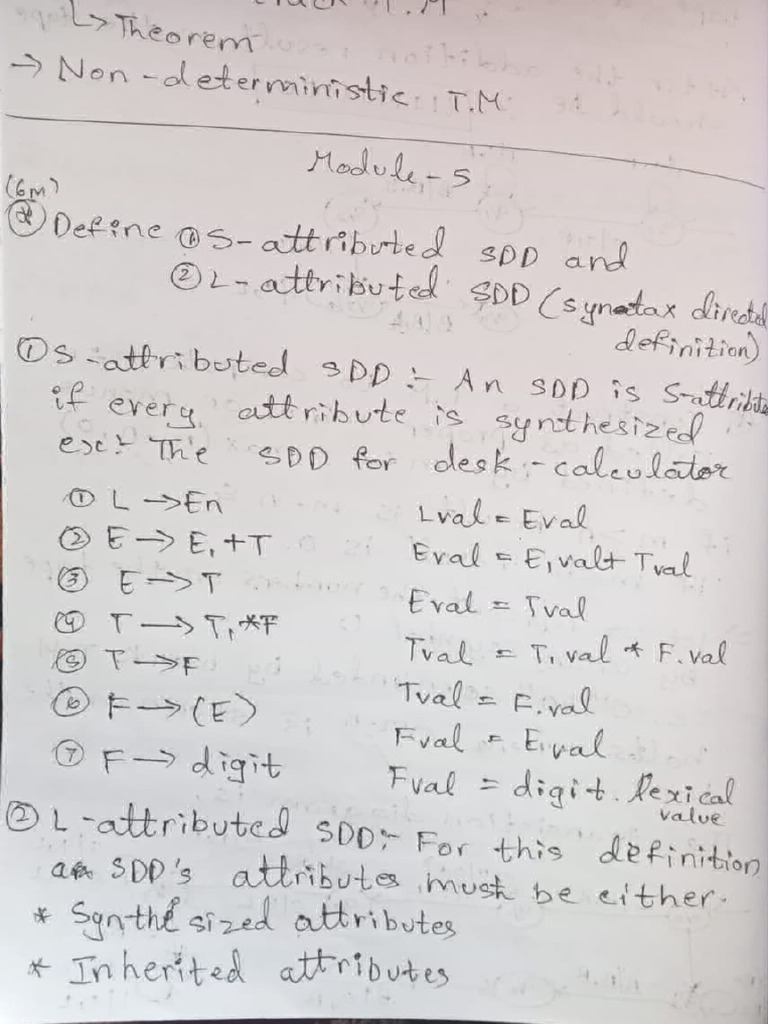 T.M.
L> Theorem
→ Non-deterministic T.M.
Module-5
(6m)
* Define ① S-attributed SDD and
② L-attributed SDD (synatax directed
definition)
① S-attributed SDD :- An SDD is S-attribute
if every attribute is synthesized
ex:- The SDD for desk-calculator
① L → En Lval = Eval
② E → E₁+T Eval = E₁val+ Tval
③ E → T Eval = Tval
④ T → T₁*F Tval = T₁val * F.val
⑤ T → F Tval = F.val
⑥ F → (E) Fval = E.val
⑦ F → digit Fval = digit.lexical
value
② L-attributed SDD:- For this definition
an SDD's attributes must be either.
* Synthesized attributes
* Inherited attributes